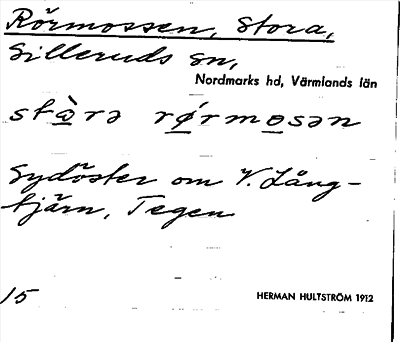 Rörmossen, Stora,
Silleruds sn,
Nordmarks hd, Värmlands län
stɷ̀rə rǿrmɷsən
Sydöster om V. Lång-
tjärn, Tegen
15
HERMAN HULTSTRÖM 1912